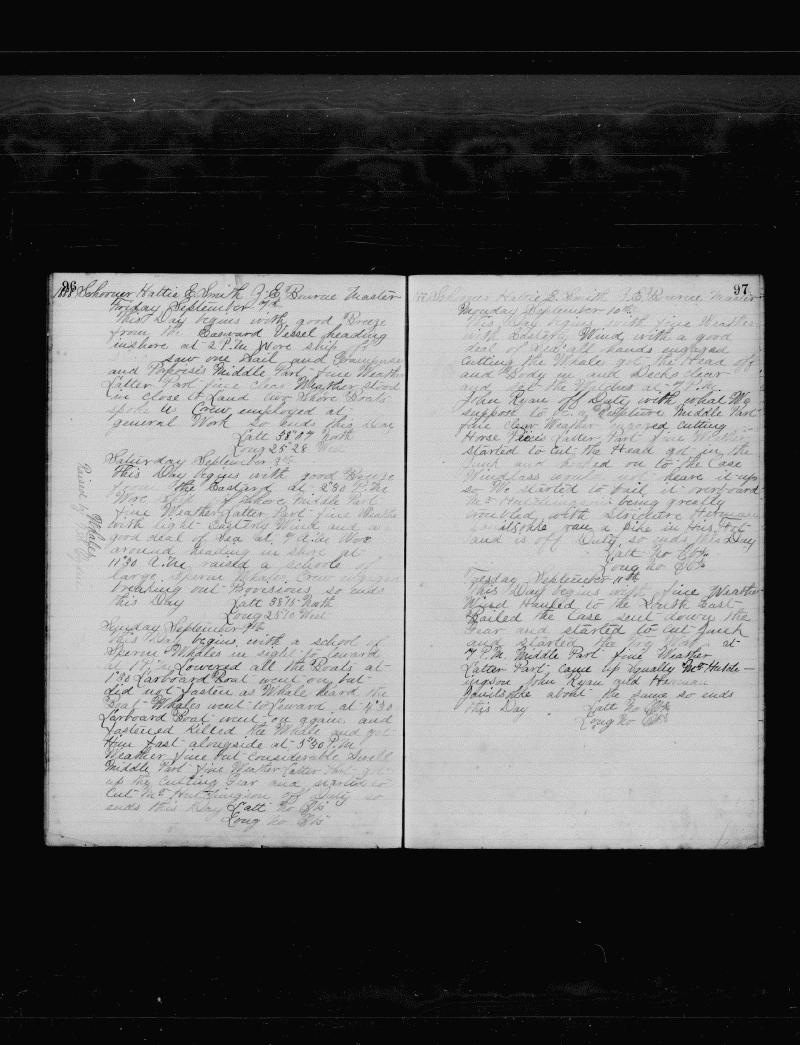 96
1888 Schooner Hattie E. Smith J. E. Bourne Master
Friday September 7th
This Day begins with good Breeze
from the Easward Vessel heading
inshore at 2 P.M. Wore ship off
Saw one Sail and
and Middle Part fine Weather
Latter Part fine clear Weather stood
in close to Land our Shore Boats
spoke Us Crew employed at
general Work so ends this Day
Latt 38°07 North
Long 25°28 West
Saturday September 8th
This Day begins with good Breeze
from the Eastard at 2°30 P.M.
Wore Ship of shore Middle Part
fine Weather Latter Part fine Weather
with light Easterly Wind and a
good deal of Sea at 7 A.M. Wore
around heading in shore at
11°30 A.M. raised a schoole of
large Sperm Whales Crew
breaking out Provisions so ends
this Day Latt 38°15 North
Long 25°10 West
Raised Whales
by
Sunday September 9th
This Day begins with a school of
Sperm Whales in sight to Leward
at 1 P.M. Lowered all the Boats at
1°30 Larboard Boat went on but
did not fasten as Whale heard the
Boat Whales went to Leward at 4°30
Larboard Boat went on again and
fastened killed the Whale and got
Him fast alongside at 5°30 P.M.
Weather fine but considerable Swell
Middle Part fine Weather Latter Part got
up the Cutting Gear and started to
Cut Mr Hutchingson off Duty so
ends this Day Latt No Obs
Long No Obs
97
Schooner Hattie E. Smith J. E. Bourne Master
Monday September 10th
This Day begins with fine Weather
with Easterly Wind with a good
deal of Sea all hands engaged
Cutting the Whale got the Head off
and Body in and Decks clear
and set the Watches at 7 P.M.
John Ryan off Duty with what We
suppose to be a Rupture Middle Part
fine clear Weather engaged cutting
Horse Pieces Latter Part fine Weather
started to Cut the Head got in the
Junk and hooked on to the Case
Windlass would not heave it up
so We started to bail it overboard
Mr Hutchingson being greatly
troubled with Stricture Herman
ran a Pike in His Foot
and is off Duty so ends this Day
Latt No Obs
Long No Obs
Tuesday September 11th
This Day begins with fine Weather
Wind Hauled to the South East
Bailed the Case sent down the
Gear and started to Cut Junk
and started the Try Works at
7 P.M. Middle Part fine Weather
Latter Part came up squally Mr Hutch-
ingson John Ryan and Herman
about the same so ends
this Day Latt No Obs
Long No Obs